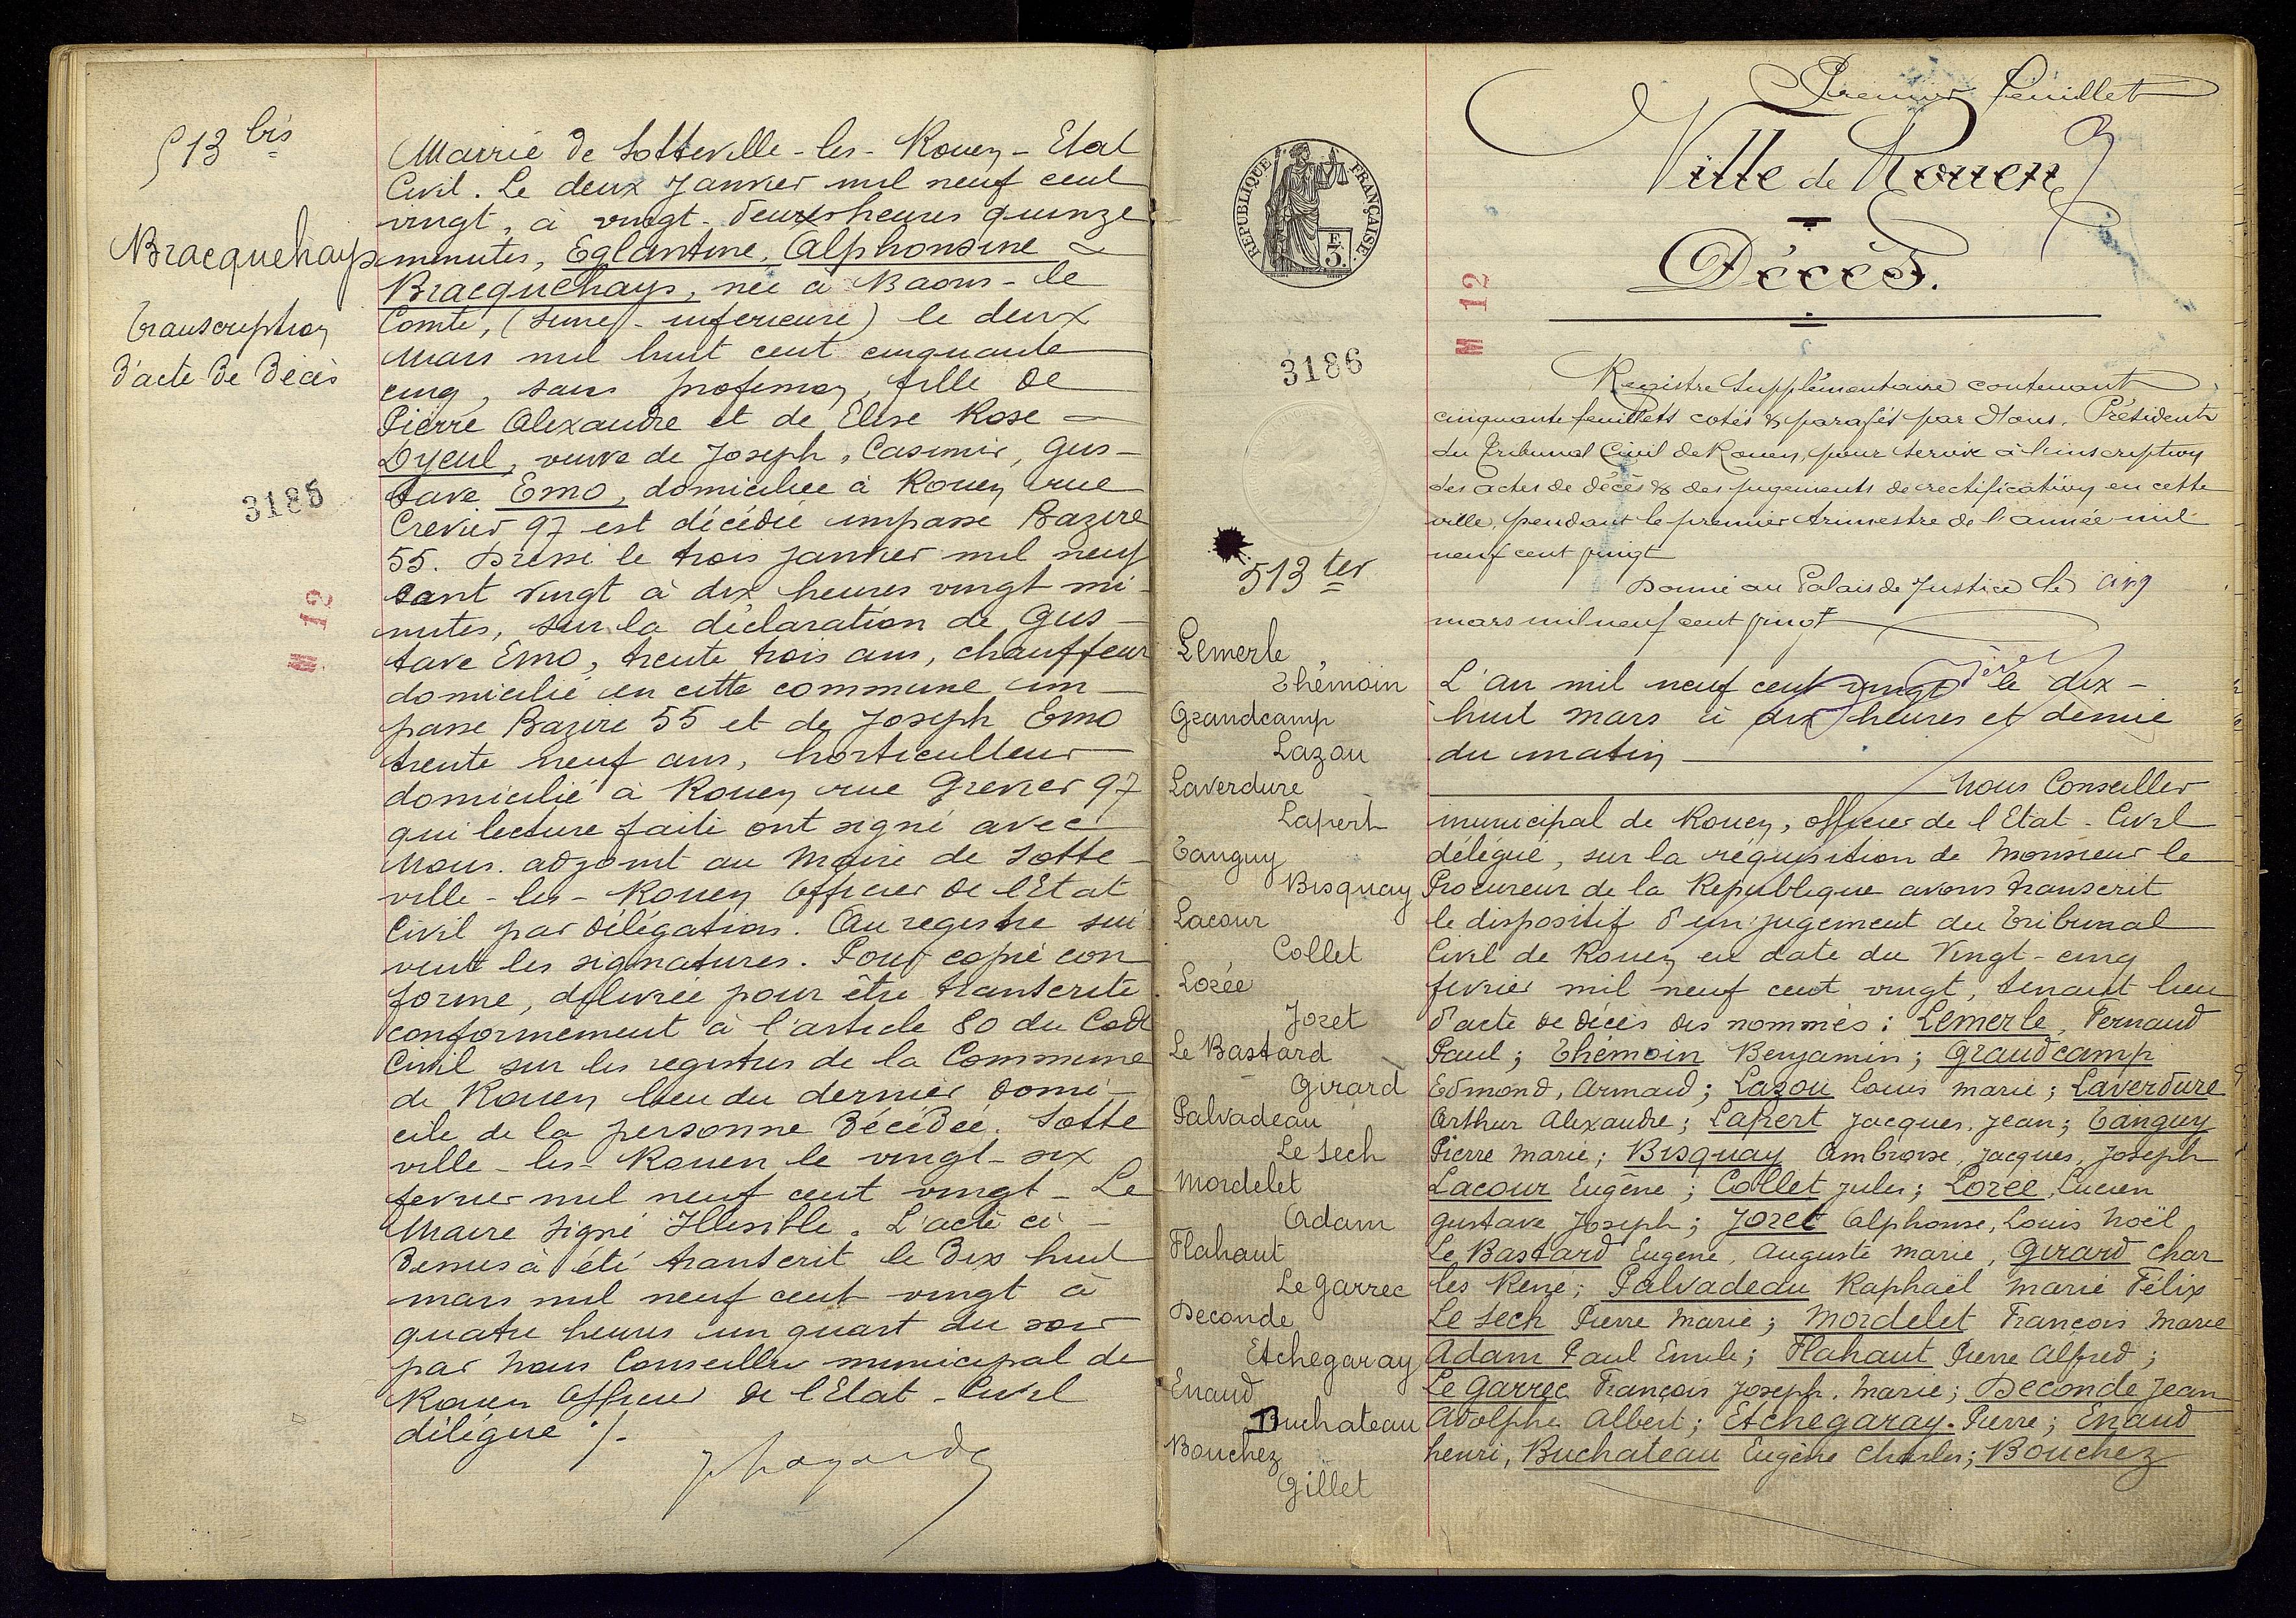 513 bis
Bracquehays
Transcription
d'acte de décès
3185
M 12
Mairie de Sotteville-les-Rouen - Etat
Civil. Le deux Janvier mil neuf cent
vingt, à vingt-deux heures quinze
minutes, Eglantine, Alphonsine
Bracquehays, née à Baons-le
Comte, (Seine-inférieure) le deux
Mars mil huit cent cinquante
cinq, sans profession, fille de
Pierre Alexandre et de Elise Rose
Dyeul, veuve de Joseph, Casimir, Gus-
tave Emo, domiciliée à Rouen rue
Crevier 97 est décédée impasse Bazire
55. Dressé le trois janvier mil neuf
cent vingt à dix heures vingt mi-
nutes, sur la déclaration de Gus-
tave Emo, trente trois ans, chauffeur
domicilié en cette commune im-
passe Bazire 55 et de Joseph Emo
trente neuf ans, horticulteur
domicilié à Rouen rue Grevier 97
qui lecture faite ont signé avec
Nous. adjoint au Maire de Sotte-
ville-les-Rouen officier de l'Etat
Civil par délégation. Au registre sui
vent les signatures. Pour copie con
forme, délivrée pour être transcrite
conformément à l'article 80 du Code
Civil sur les registres de la Commune
de Rouen lieu du dernier domi-
cile de la personne décédée. Sotte
ville-les-Rouen le vingt-six
fevrier mil neuf cent vingt - Le
Maire Signé Illisible. L'acte ci-
dessus à été transcrit le dix huit
mars mil neuf cent vingt à
quatre heures un quart du soir
par Nous Conseiller municipal de
Rouen officier de l'Etat-Civil
délégué ./.
Premier feuillet
Ville de Rouen
Décès.
REPUBLIQUE FRANÇAISE.
F.
3.
M 12
3186
Registre Supplémentaire contenant
cinquante feuillets cotés & parafés par Nous, Président
du Tribunal Civil de Rouen, pour servir à l'inscription
des actes de décès & des jugements de rectification en cette
ville, pendant le premier trimestre de l'année mil
neuf cent vingt
Donné au Palais de Justice le cinq
mars mil neuf cent vingt
513 ter
Lemerle
Thémoin
Grandcamp
Lazou
Laverdure
Lapert
Tanguy
Bisquay
Lacour
Collet
Lozée
Jozet
Le Bastard
Girard
Palvadeau
Le Sech
Mordelet
Adam
Flahaut
Le Garrec
Deconde
Etchegaray
Enaud
Buchateau
Bouchez
Gillet
L'an mil neuf cent vingt le dix-
huit mars à dix heures et demie
du matin
Nous Conseiller
municipal de Rouen, officier de l'Etat-Civil
délégué, sur la réquisition de Monsieur le
Procureur de la République avons transcrit
le dispositif d'un jugement du Tribunal
Civil de Rouen en date du Vingt-cinq
fevrier mil neuf cent vingt, tenant lieu
d'acte de décès des nommés : Lemerle, Fernand
Paul ; Thémoin Benjamin ; Grandcamp
Edmond, Armand ; Lazou Louis Marie ; Laverdure
Arthur Alexandre ; Lapert Jacques, Jean ; Tanguy
Pierre Marie ; Bisquay Ambroise, Jacques, Joseph
Lacour Eugène ; Collet Jules ; Lozée, Lucien
Gustave Joseph ; Jozet Alphonse, Louis Noël
Le Bastard Eugène, Auguste Marie, Girard Char
les René ; Palvadeau Raphaël Marie Félix
Le Sech Pierre Marie ; Mordelet François Marie
Adam Paul Emile ; Flahaut Pierre Alfred ;
Le Garrec François Joseph. Marie ; Deconde Jean
Adolphe Albert ; Etchegaray. Pierre ; Enaud
henri, Buchateau Eugène Charles ; Bouchez